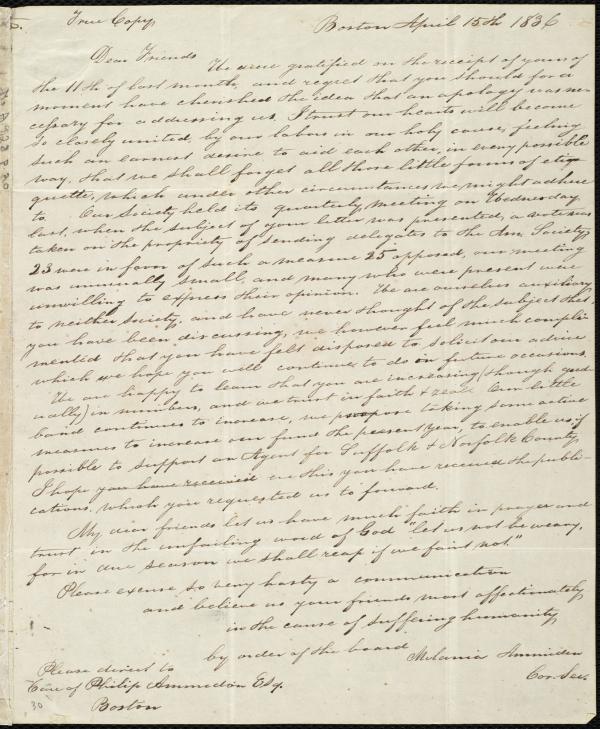 True Copy,
Boston April 15th 1836
Dear Friends
We were gratified on the receipt of yours of
the 11th of last month, and regret that you should for a
moment have cherished the idea that an apology was ne-
cessary for addressing us, I trust our hearts will become
so closely united, by our labors in our holy cause, feeling
such an earnest desire to aid each other, in every possible
way, that we shall forget all those little forms of eti-
quette, which under other circumstances we might adhere
to. Our Society held its quarterly meeting on Wednesday
last, when the subject of your letter was presented, a vote was
taken on the propriety of sending delegates to the Am. Society,
23 were in favor of such a measure 25 opposed, our meeting
was unusually small, and many who were present were
unwilling to express their opinion. We are ourselves auxiliary
to neither Society, and have never thought of the subject that
you have been discussing, we however feel much compli-
mented that you have felt disposed to solicit our advice
which we hope you will continue to do on future occasions.
We are happy to learn that you are increasing (though grad-
ually) in numbers, and we trust in faith & zeal. Our little
band continues to increase, we propose taking some active
measures to increase our funds the present year, to enable us if
possible to support an Agent for Suffolk & Norfolk County,
I hope you have received ere this you have received the publi-
cations, which you requested us to forward.
My dear friends let us have much faith in prayer and
trust in the unfailing word of God "let us not be weary,
for in due season we shall reap if we faint not."
Please excuse so very hasty a communication
and believe us your friends most affectionately
in the cause of suffering humanity
by order of the board
Melania Ammidon
Cor. Sec.
Please direct to
Care of Philip Ammidon Esq.
Boston
30